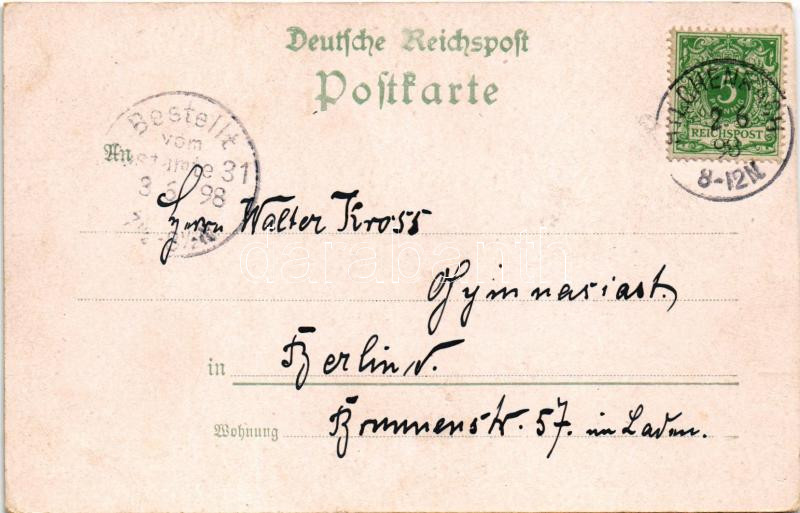 Deutsche Reichspost
Postkarte
5
REICHSPOST
2 6
98
8-12N
Bestellt
vom
Postamte 31
3 6 98
An
Herrn Walter Kross
darabanth
Gymnasiast.
in Berlin N.
Wohnung Brunnenstr. 57. im Laden.